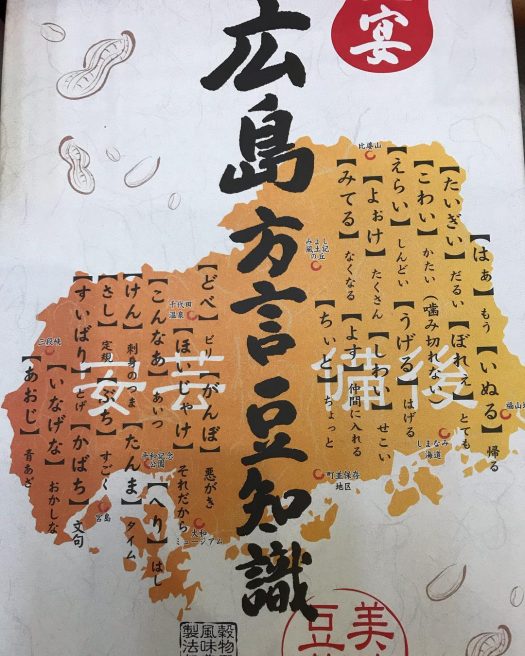 宴
広島方言豆知識
備後
安芸
【いぬる】帰る
【はぁ】もう
【たいぎい】だるい
【ぼれぇ】とても
【こわい】かたい(噛み切れない)
【えらい】しんどい
【うげる】はげる
【よぉけ】たくさん
【しわ】せこい
【みてる】なくなる
【よす】仲間に入れる
【ちぃと】ちょっと
【どべ】ビリ
【がんぼ】悪がき
【ほいじゃけ】それだから
【こんなあ】あいつ
【へり】はし
【けん】刺身のつま
【たんま】タイム
【さし】定規
【ぶち】すごく
【すいばり】とげ
【かばち】文句
【いなげな】おかしな
【あおじ】青あざ
比婆山
みよし
風土記
の丘
千代田
温泉
三段峡
平和記念
公園
宮島
大和
ミュージアム
町並保存
地区
しまなみ
海道
福山
穀物
風味
製法
美
豆